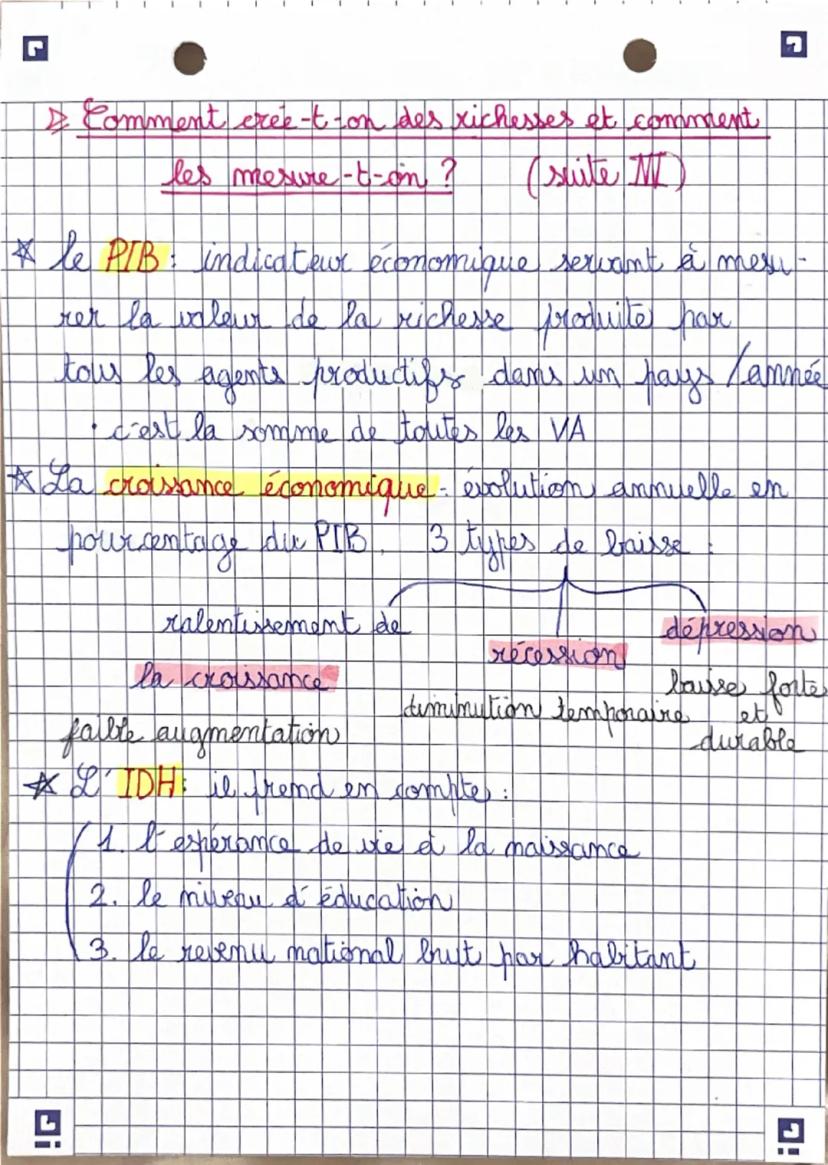 ▷ Comment crée-t-on des richesses et comment
les mesure-t-on ? (suite III)
* le PIB : indicateur économique servant à mesu-
rer la valeur de la richesse produite par
tous les agents productifs dans un pays /année
· c'est la somme de toutes les VA
* La croissance économique : évolution annuelle en
pourcentage du PIB. 3 types de baisse :
ralentissement de
la croissance
faible augmentation
récession
diminution temporaire
dépression
baisse forte
et
durable
* L'IDH : il prend en compte :
1. l'espérance de vie à la naissance
2. le niveau d'éducation
3. le revenu national brut par habitant